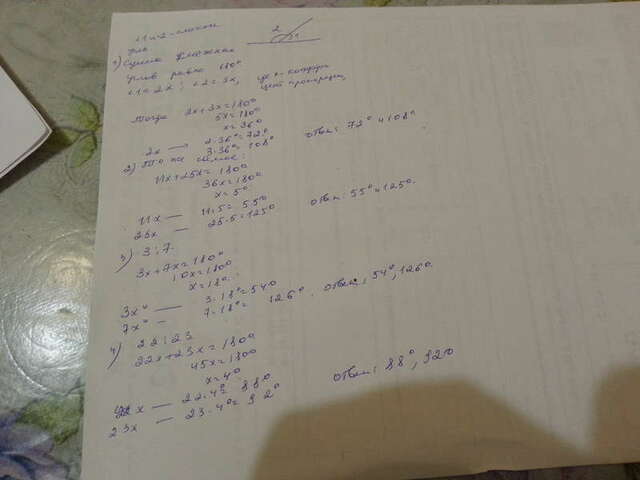 ∠1 и 2 - смежн
углы
2
1
1) Сумма смежных
углов равна 180°
∠1 = 2x ; ∠2 = 3x, где x - коэффи
циент пропорции,
тогда 2x+3x=180°
5x=180°
x=36°
2x — 2·36°=72°
3·36°=108° ответ: 72° и 108°
2) То же самое:
11x+25x=180°
36x=180°
x=5°
11x — 11·5=55°
25x — 25·5=125° ответ: 55° и 125°
3) 3:7.
3x+7x=180°
10x=180°
x=18°
3x° — 3·18°=54°
7x° — 7·18°= 126°. ответ: 54°, 126°.
4) 22:23
22x+23x=180°
45x=180°
x=4°
22x — 22·4°=88°
23x — 23·4°=92° ответ: 88°, 92°